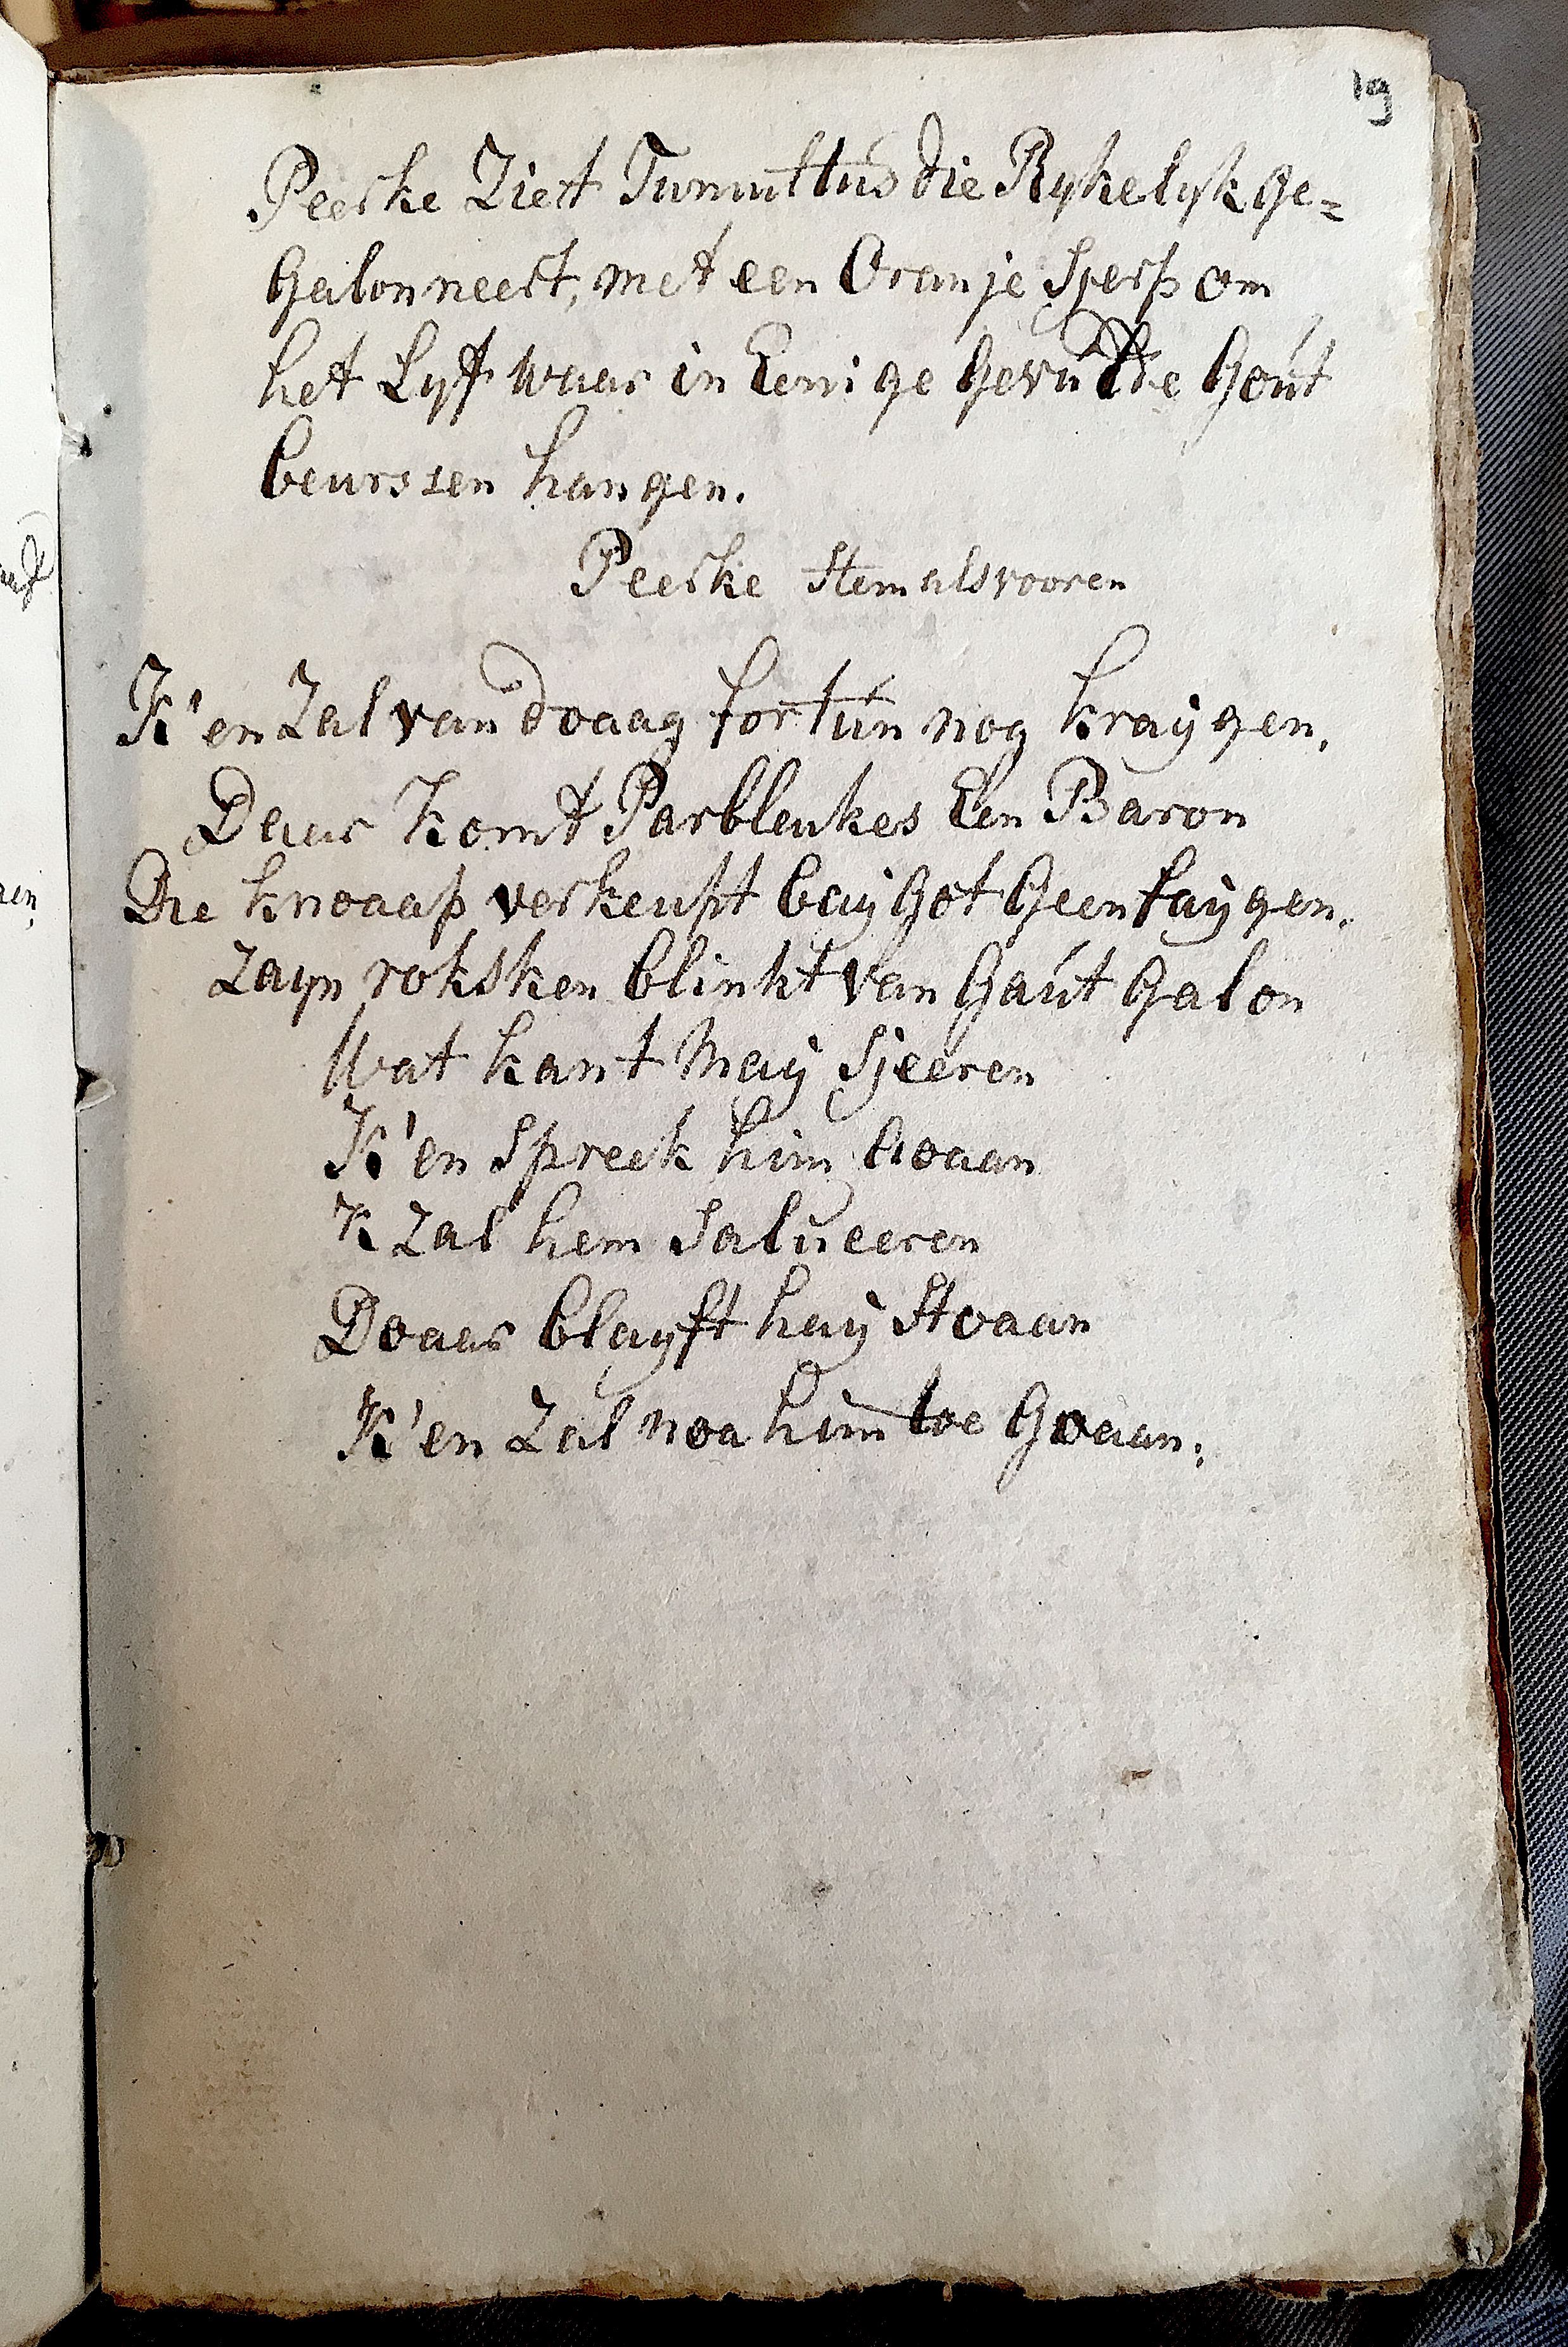 19
Peerke Ziet Tumultus die Rykelyk ge=
Galonneert, met een Oranje Sjerp om
het Lyf waar in Eenige Gevulde Goút
beurssen hangen.
Peerke Stem als vooren
K'en Zal van doaag fortún nog kraÿgen,
Daar komt Parbleukes Een Baron
Die knoaap verkeupt baÿ Got Geen faÿgen.
Zayn roksken blinkt van Gaút Galon
Wat kan't Maÿ Sjeeren
K'en Spreek him Aoaan
K Zal hem Salueeren
Doaar blayft haÿ Stoaan
K'en Zal noa him toe Goaan;